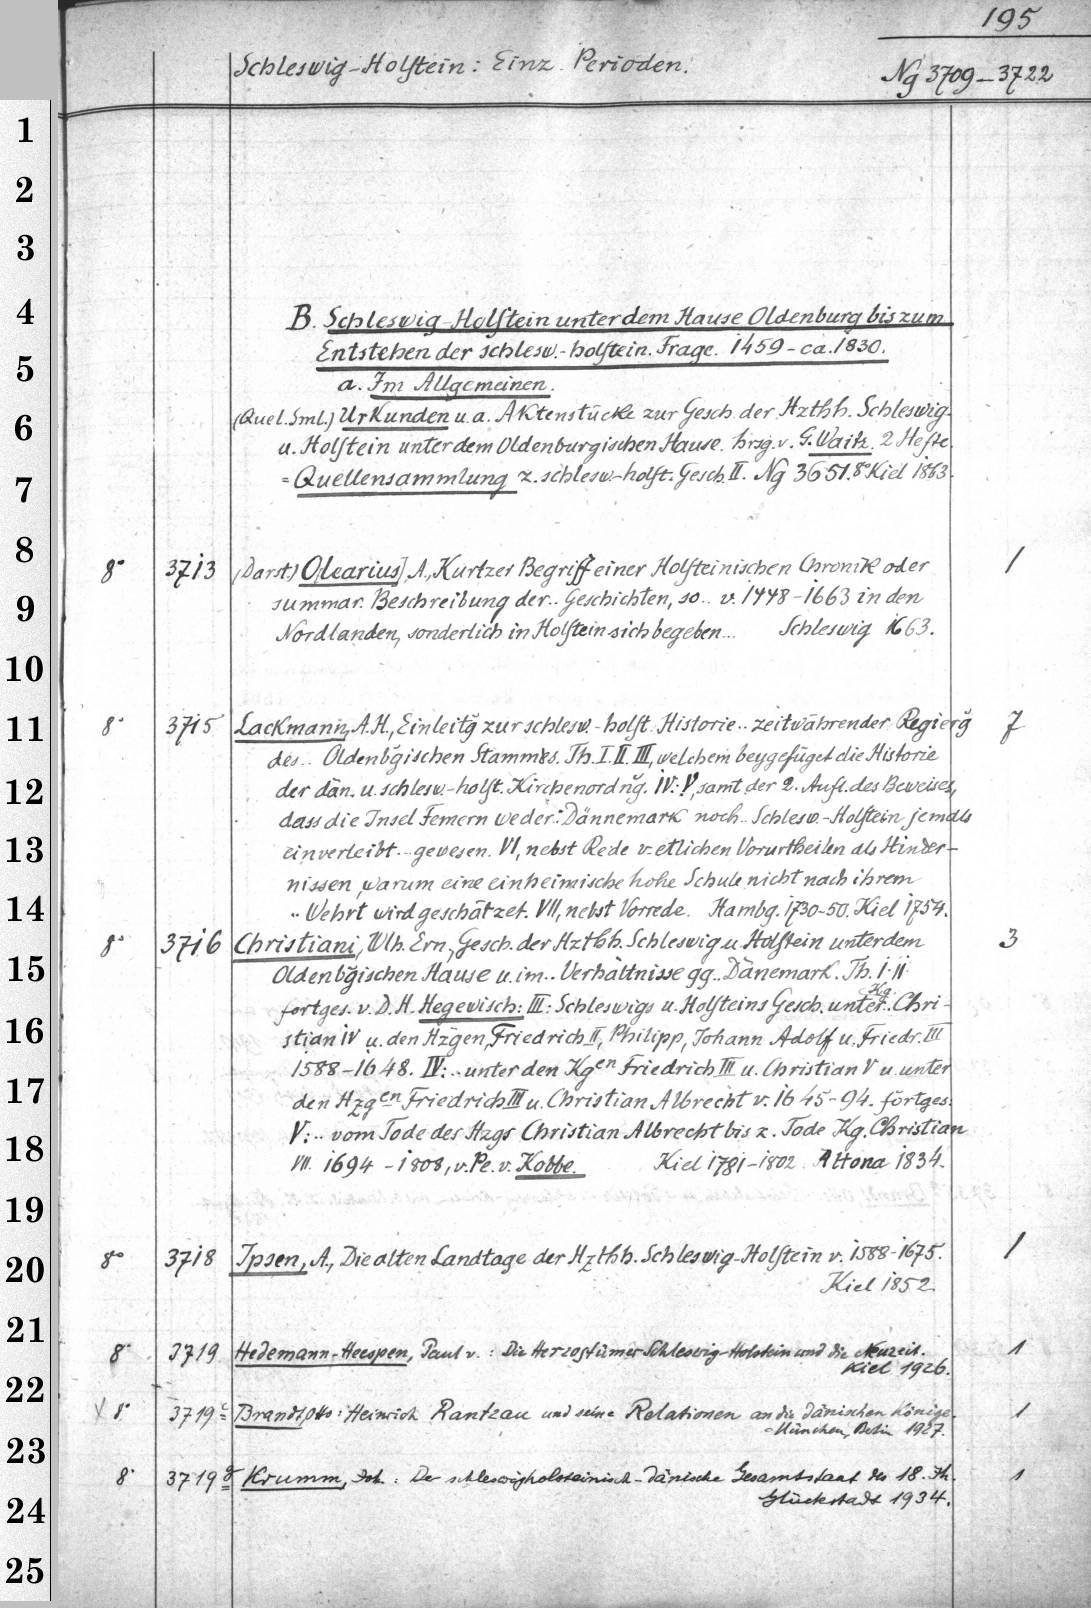 195
Schleswig-Holstein: Einz. Perioden.
Ng 3709-3722
1
2
3
4 B. Schleswig-Holstein unter dem Hause Oldenburg bis zum
5 Entstehen der schlesw.-holstein. Frage. 1459-ca.1830.
a. Im Allgemeinen.
6 (Quel.Sml.) Urkunden u. a. Aktenstücke zur Gesch. der Hzthh. Schleswig-
u. Holstein unter dem Oldenburgischen Hause. hrsg. v. G. Waitz. 2 Hefte.
7 = Quellensammlung z. schlesw.-holst. Gesch. II. Ng 3651. 8° Kiel 1863.
8 8° 3713 (Darst.) Olearius], A., Kurtzer Begriff einer Holsteinischen Chronik oder 1
9 summar. Beschreibung der.. Geschichten, so.. v. 1448-1663 in den
Nordlanden, sonderlich in Holstein sich begeben... Schleswig 1663.
10
11 8° 3715 Lackmann, A.H., Einleitg̃ zur schlesw.-holst. Historie.. zeitwährender Regierg̃ 7
des.. Oldenbg̃ischen Stammes. Th. I. II. III, welchem beygefüget die Historie
12 der dän. u. schlesw.-holst. Kirchenordng̃. IV. V, samt der 2. Aufl. des Beweises,
dass die Insel Femern weder.. Dännemark noch.. Schlesw.-Holstein jemals
13 einverleibt... gewesen. VI, nebst Rede v. etlichen Vorurtheilen als Hinder-
nissen, warum eine einheimische hohe Schule nicht nach ihrem
14 .. Wehrt wird geschätzet. VII, nebst Vorrede. Hambg. 1730-50. Kiel 1754.
8° 3716 Christiani, Wlh. Ern., Gesch. der Hzthh. Schleswig u. Holstein unter dem 3
15 Oldenbg̃ischen Hause u. im.. Verhältnisse gg.. Dänemark. Th. I. II
fortges. v. D. H. Hegewisch: III: Schleswigs u. Holsteins Gesch. unter.. Kg. Chri-
16 stian IV u. den Hzgen, Friedrich II, Philipp, Johann Adolf u. Friedr. III
1588-1648. IV:.. unter den Kgen Friedrich III u. Christian V u. unter
17 den Hzgen Friedrich III u. Christian Albrecht v. 1645-94. fortges.
V:.. vom Tode des Hzgs Christian Albrecht bis z. Tode Kg. Christian
18 VII. 1694-1808, v. Pe. v. Kobbe. Kiel 1781-1802. Altona 1834.
19
20 8° 3718 Ipsen, A., Die alten Landtage der Hzthh. Schleswig-Holstein v. 1588-1675. 1
Kiel 1852.
21 8° 3719 Hedemann-Heespen, Paul v.: Die Herzogtümer Schleswig-Holstein und die Neuzeit. 1
22 Kiel 1926.
8° 3719c Brandt, Otto: Heinrich Rantzau und seine Relationen an die dänischen Könige. 1
23 =München, Berlin 1927.
8° 3719g Krumm, Joh.: Der schleswigholsteinisch-dänische Gesamtstaat des 18. Jh. 1
24 Glückstadt 1934.
25